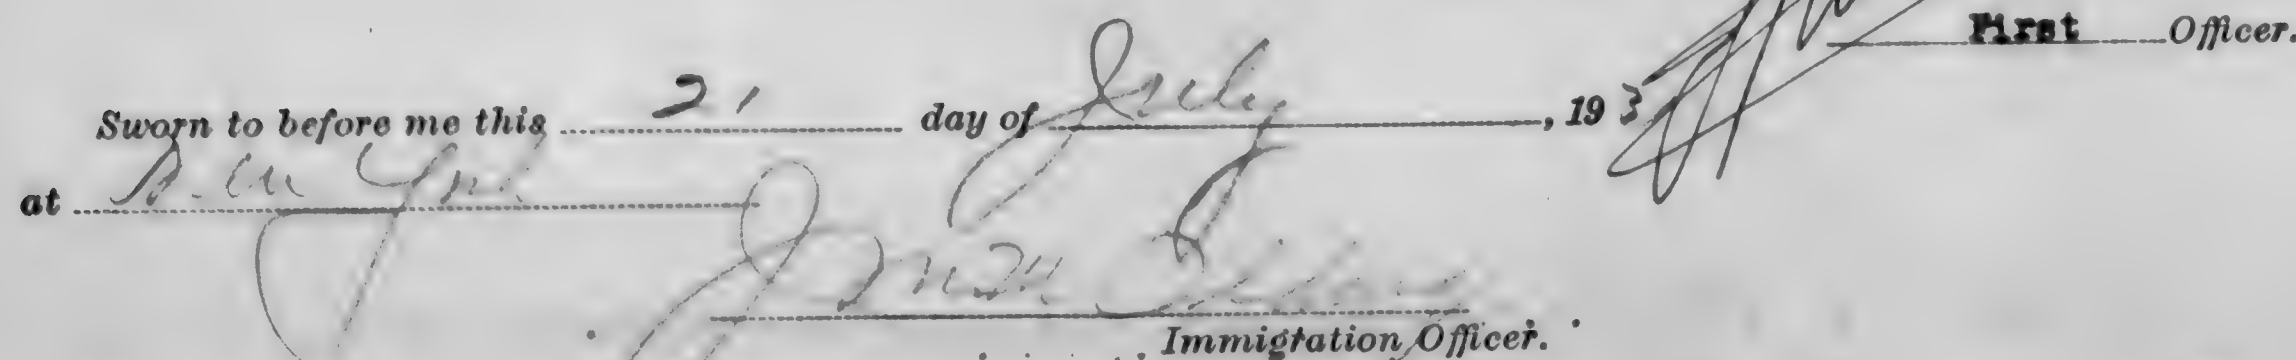 First Officer.
Sworn to before me this 21 day of July, 193
at New York
Immigration Officer.